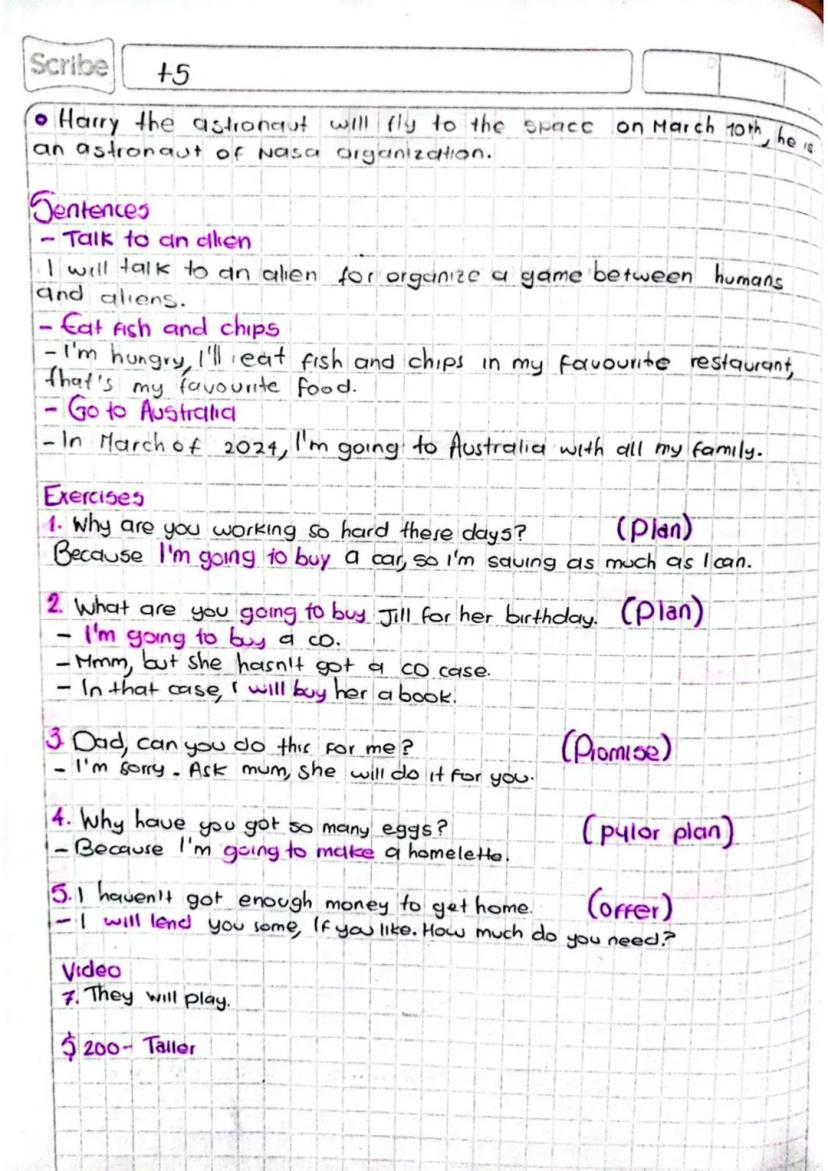 Scribe
+5
• Harry the astronaut will fly to the space on March 10th, he is
an astronaut of Nasa organization.
Sentences
- Talk to an alien
I will talk to an alien for organize a game between humans
and aliens.
- Eat fish and chips
- I'm hungry, I'll eat fish and chips in my favourite restaurant,
that's my favourite food.
- Go to Australia
- In March of 2024, I'm going to Australia with all my family.
Exercises
1. Why are you working so hard there days? (Plan)
Because I'm going to buy a car, so I'm saving as much as I can.
2. What are you going to buy Jill for her birthday. (Plan)
- I'm going to buy a CD.
- Mmm, but she hasn't got a CD case.
- In that case, I will buy her a book.
3. Dad, can you do this for me? (Promise)
- I'm sorry. Ask mum, she will do it for you.
4. Why have you got so many eggs? (pylor plan)
- Because I'm going to make a homelette.
5. I haven't got enough money to get home. (offer)
- I will lend you some, If you like. How much do you need?
Video
7. They will play.
$200- Taller